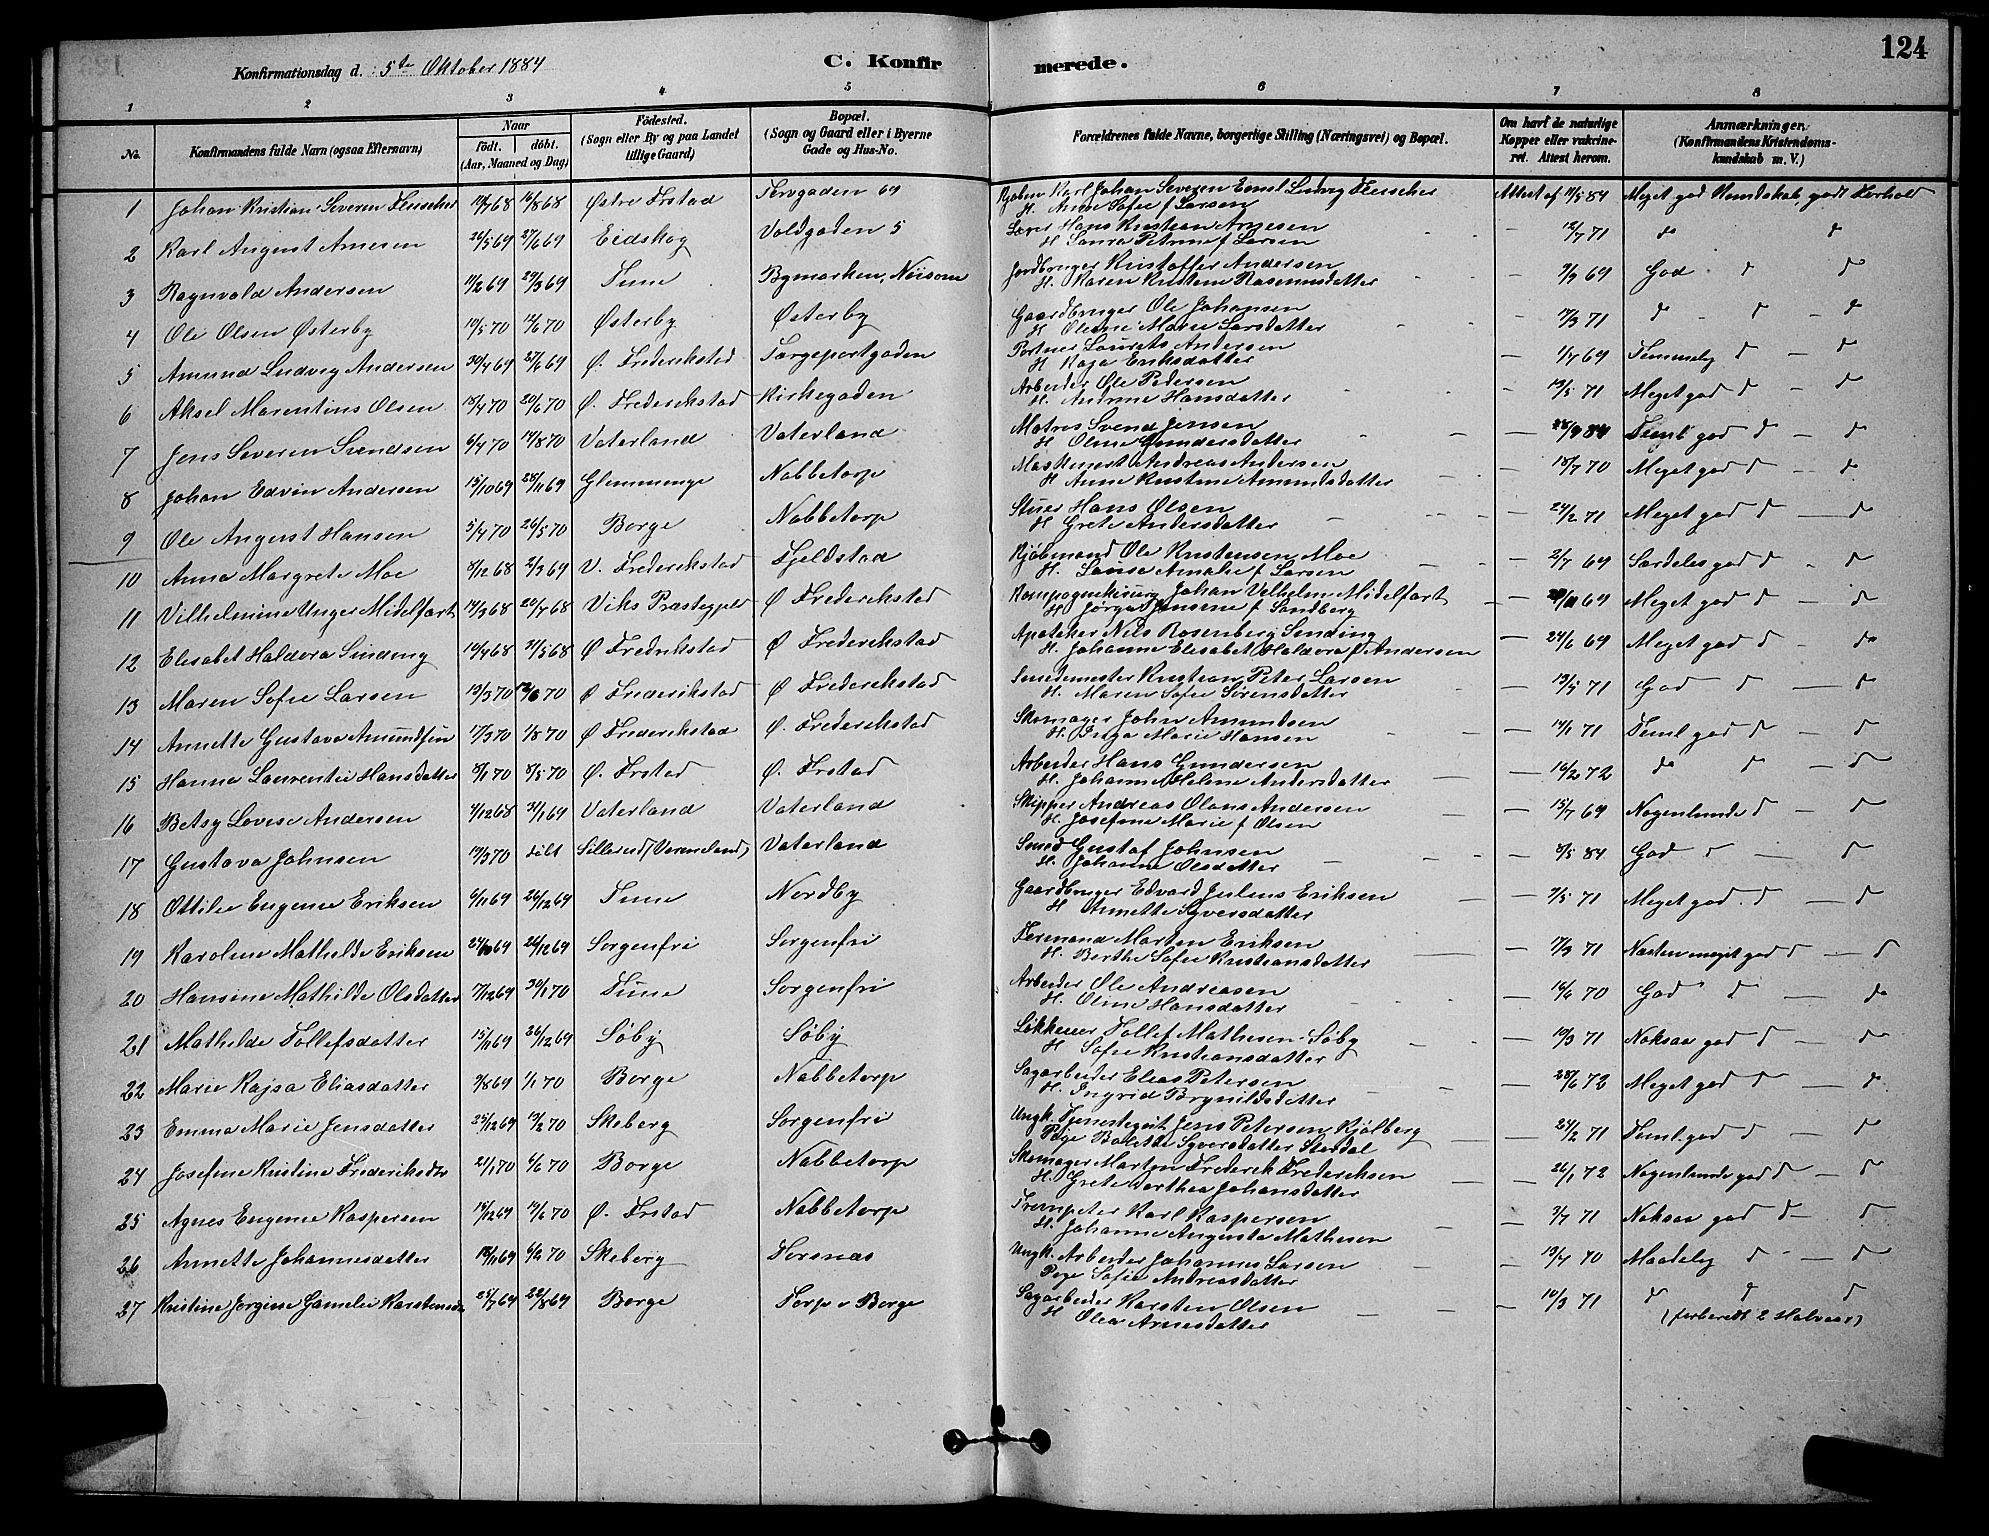 124
Konfirmationsdag d. 5te Oktober 1884
C. Konfirmerede.
1 2 3 4 5 6 7 8
No.
Konfirmandens fulde Navn (ogsaa Efternavn)
Naar
födt. döbt.
(Aar, Maaned og Dag)
Födested.
(Sogn eller By og paa Landet
tillige Gaard)
Bopæl.
(Sogn og Gaard eller i Byerne
Gade og Hus-No.
Forældrenes fulde Navne, borgerlige Stilling (Næringsvei) og Bopæl.
Om havt de naturlige
Kopper eller vakcine-
ret. Attest herom.
Anmærkninger.
(Konfirmandens Kristendoms-
kundskab m. V.)
1 Johan Kristian Severin Fleischer 16/8 68 Østre Frstad 69 Karl Johan Severin Emil Ludvig Fleischer Attest af 84 Meget god Kundskab, godt Forhold
H. Anne Sofie f Larsen
2 Karl August Arnesen 26/5 69 27/6 69 Eidskog Voldgaden 5 Hans Kristian Arnesen — 12/7 71 do do
H Laura Petrine f Larsen
3 Ragnvald Andersen 11/2 69 29/3 69 Tune Bymarken, Jordbruger Kristoffer Andersen — 9/9 69 God d d
H. Maren Kristine Rasmusdatter
4 Ole Olsen Østerby 10/5 70 12/6 70 Østerby Østerby Gaardbruger Ole Johansen 71 d d d
H Oline Marie Larsdatter
5 Amund Ludvig Andersen 30/4 69 27/6 69 Ø. Frederikstad Torgeportgaden Portner Laurits Andersen — 1/7 69 Temmelig d — d
H Kaja Eriksdatter
6 Aksel Marentius Olsen 15/4 70 20/6 70 Ø. Frederikstad Kirkegaden Arbeider Ole Pedersen — 13/5 71 Meget god d — d
H. Andrine Hansdatter
7 Jens Severin Svendsen 6/4 70 14/8 70 Vaterland Vaterland Matros Svend Jensen — 84 Teml god d — d
H Oline Gundersdatter
8 Johan Edvin Andersen 13/10 69 28/11 69 Glemminge Nabbetorp Maskinist Andreas Andersen — 15/7 70 Meget god d — do
H Anne Kristine Amundsdatter
9 Ole August Hansen 5/4 70 26/5 70 Borge Nabbetorp Stuer Hans Olsen — 24/2 71 Meget god d — d
H Grete Andersdatter
10 Anna Margrete Moe 8/12 68 2/3 69 V. Frederikstad Fjeldstad Kjøbmand Ole Kristensen Moe — 2/7 69 Særdeles god d — d
H. Lovise Amalie f Larsen
11 Vilhelmine Unger Midelfart 14/3 68 20/7 68 Viks Præstegjeld Ø Frederikstad Kompagnikirurg Johan Vilhelm Midelfart 69 Meget god d — d
H Jørga Jensine f Sandberg
12 Elisabet Haldora Sinding 10/4 68 31/5 68 Ø Frederikstad Ø Frederikstad Apoteker Nils Rosenberg Sinding — 24/6 69 Meget god d — do
H. Johanne Elisabet Haldora f Andersen
13 Maren Sofie Larsen 13/3 70 70 Ø Frederikstad Ø Frederikstad Smedemester Kristian Peter Larsen — 13/5 71 God d — d
H. Maren Sofie Sørensdatter
14 Annette Gustava Amundsen 17/3 70 1/8 70 Ø Frederikstad Ø. Frederikstad Skomager John Amundsen — 14/1 71 Teml god d — d
H. Inga Marie Hansen
15 Hanna Laurentie Hansdatter 8/1 70 8/5 70 Ø. Frstad Ø. Frstad Arbeider Hans Gundersen — 16/2 72 do d — d
H. Johanne Helene Andersdatter
16 Betsy Lovise Andersen 4/12 68 31/1 69 Vaterland Vaterland Skipper Andreas Olaus Andersen — 15/7 69 Nogenlunde d — d
H. Josefine Marie f Olsen
17 Gustava Johnsen 19/3 70 døbt Sillerud (Vermeland) Vaterland Smed Gustaf Johnsen — 3/5 84 God d — d
H. Johanne Olsdatter
18 Ottilie Eugenie Eriksen 6/11 69 26/12 69 Tune Nordby Gaardbruger Edvard Julius Eriksen — 9/5 71 Meget god d — d
H Annette Syversdatter
19 Karoline Mathilde Eriksen 24/10 69 26/12 69 Sorgenfri Sorgenfri Marten Eriksen — 17/3 71 Næsten meget god d — d
H. Berthe Sofie Kristiansdatter
20 Hansine Mathilde Olsdatter 7/12 69 30/1 70 Tune Sorgenfri Arbeider Ole Andreasen — 16/6 70 God d — do
H. Oline Hansdatter
21 Mathilde Tollefsdatter 15/11 69 26/12 69 Søby Søby Tollef Mathisen Søby — 19/3 71 Noksaa god d — d
H Sofie Kristiansdatter
22 Marie Kajsa Eliasdatter 9/8 69 1/1 70 Borge Nabbetorp Sagarbeider Elias Petersen — 28/6 72 Meget god d — d
H. Ingrid Brynildsdatter
23 Emma Marie Jensdatter 25/12 69 13/2 70 Skeberg Sorgenfri Ungk. Tjenestegut Jens Petersen Kjølberg — 24/2 71 Teml. god d — d
Pige Bolette Syversdatter Stordal
24 Josefine Kristine Frederiksdtr 21/1 70 6/6 70 Borge Nabbetorp Skomager Morten Frederik Frederiksen — 26/1 72 Nogenlunde god d — d
H. Grete Dorthea Johansdatter
25 Agnes Eugenie Kaspersen 15/12 69 19/6 70 Ø. Frstad Nabbetorp Trompeter Karl Kaspersen — 3/7 71 Noksaa god d — d
H. Johanne Augusta Mathisen
26 Annette Johannesdatter 69 6/2 70 Skeberg Torsnæs Ungk. Arbeider Johannes Larsen — 19/4 70 Maadelig d — d
Pige Sofie Andreasdatter
27 Kristine Jørgine Gamelie 25/7 69 22/8 69 Borge Torp i Borge Sagarbeider Karsten Olsen — 10/3 71 d d d
H Olea Arnesdatter (forberedt 2 Halvaar)